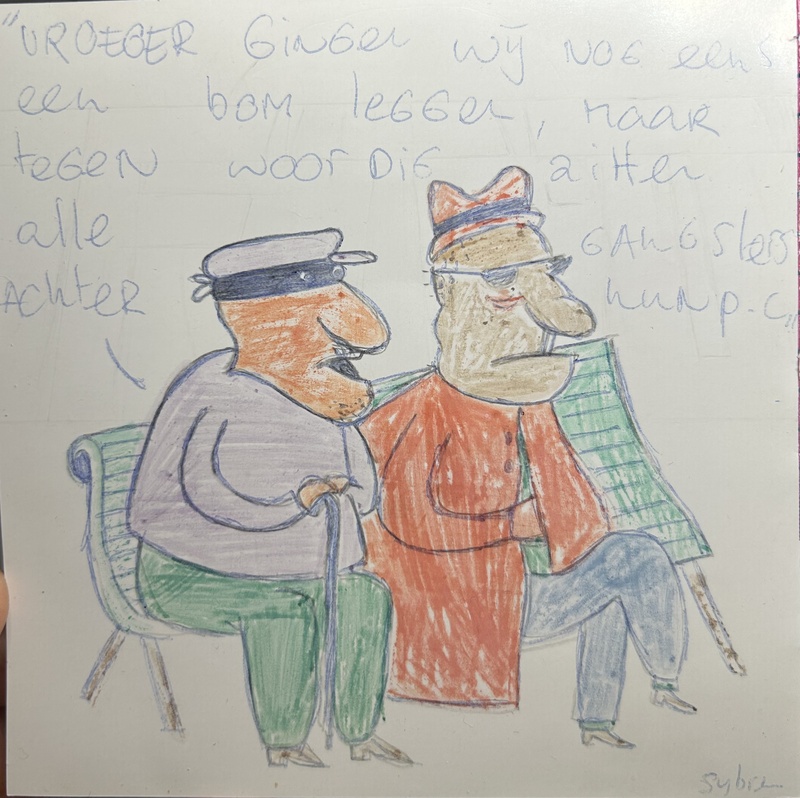 "VROEGER GiNGeN wij NOG eens
een bom leggen, maar
teGeN woorDIG zitten
alle GANGSters
Achter hun p.c"
Sybren